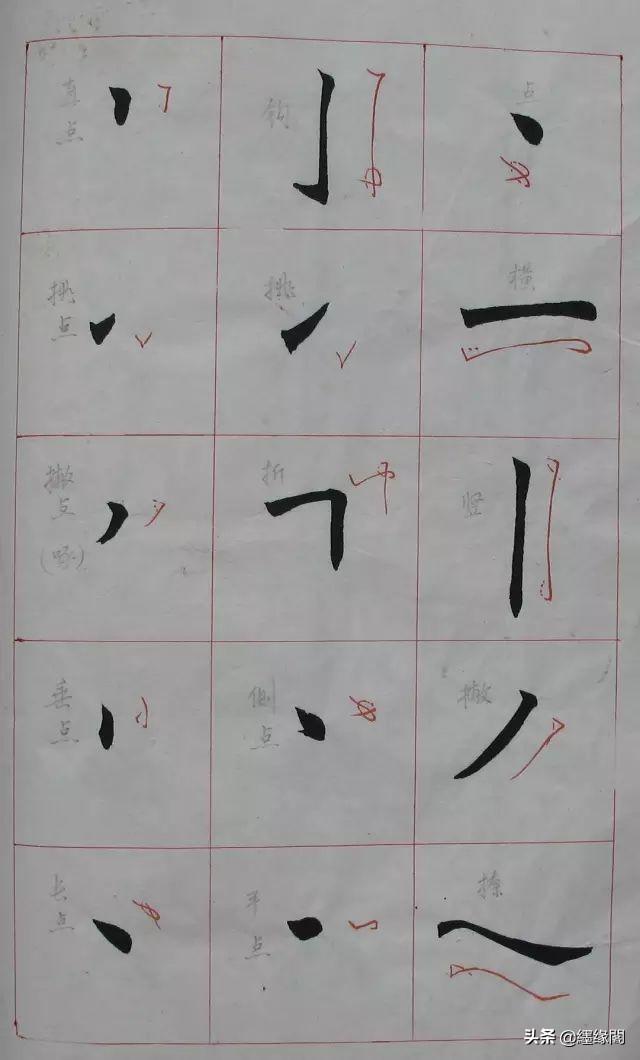 点
横
竖
撇
捺
钩
挑
折
侧点
平点
直点
挑点
撇点
(啄)
垂点
长点
头条 @纆缘閣